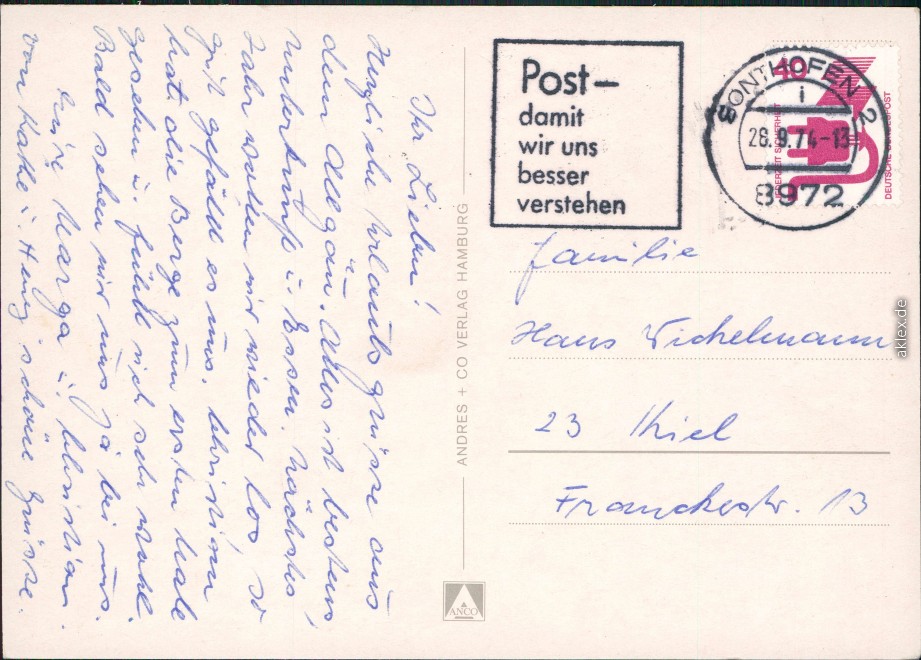 Ihr Lieben!
Herzliche Urlaubsgrüsse aus
dem Allgäu. Alles ist bestens,
Unterkunft u. Essen. Nächstes
Jahr wollen wir wieder los, so
gut gefällt es uns. Christian
hat die Berge zum ersten Male
gesehen u. fühlt sich sehr wohl.
Bald sehen wir uns ja bei uns.
Eure Marga u. Christian
von Katke u. Heinz schöne Grüsse.
ANDRES + CO VERLAG HAMBURG
ANCO
Post –
damit
wir uns
besser
verstehen
SONTHOFEN 2
i
28.9.74-13
8972
40
JEDERZEIT SICHERHEIT
DEUTSCHE BUNDESPOST
Familie
Hans Wichelmann
23 Kiel
Franckestr. 13
aklex.de